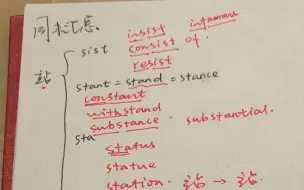 同来汇总
insist infamous
sist consist of.
resist
站
stant = stand = stance
constant
withstand
substance. substantial.
sta
status
statue
station. 站 → 站.